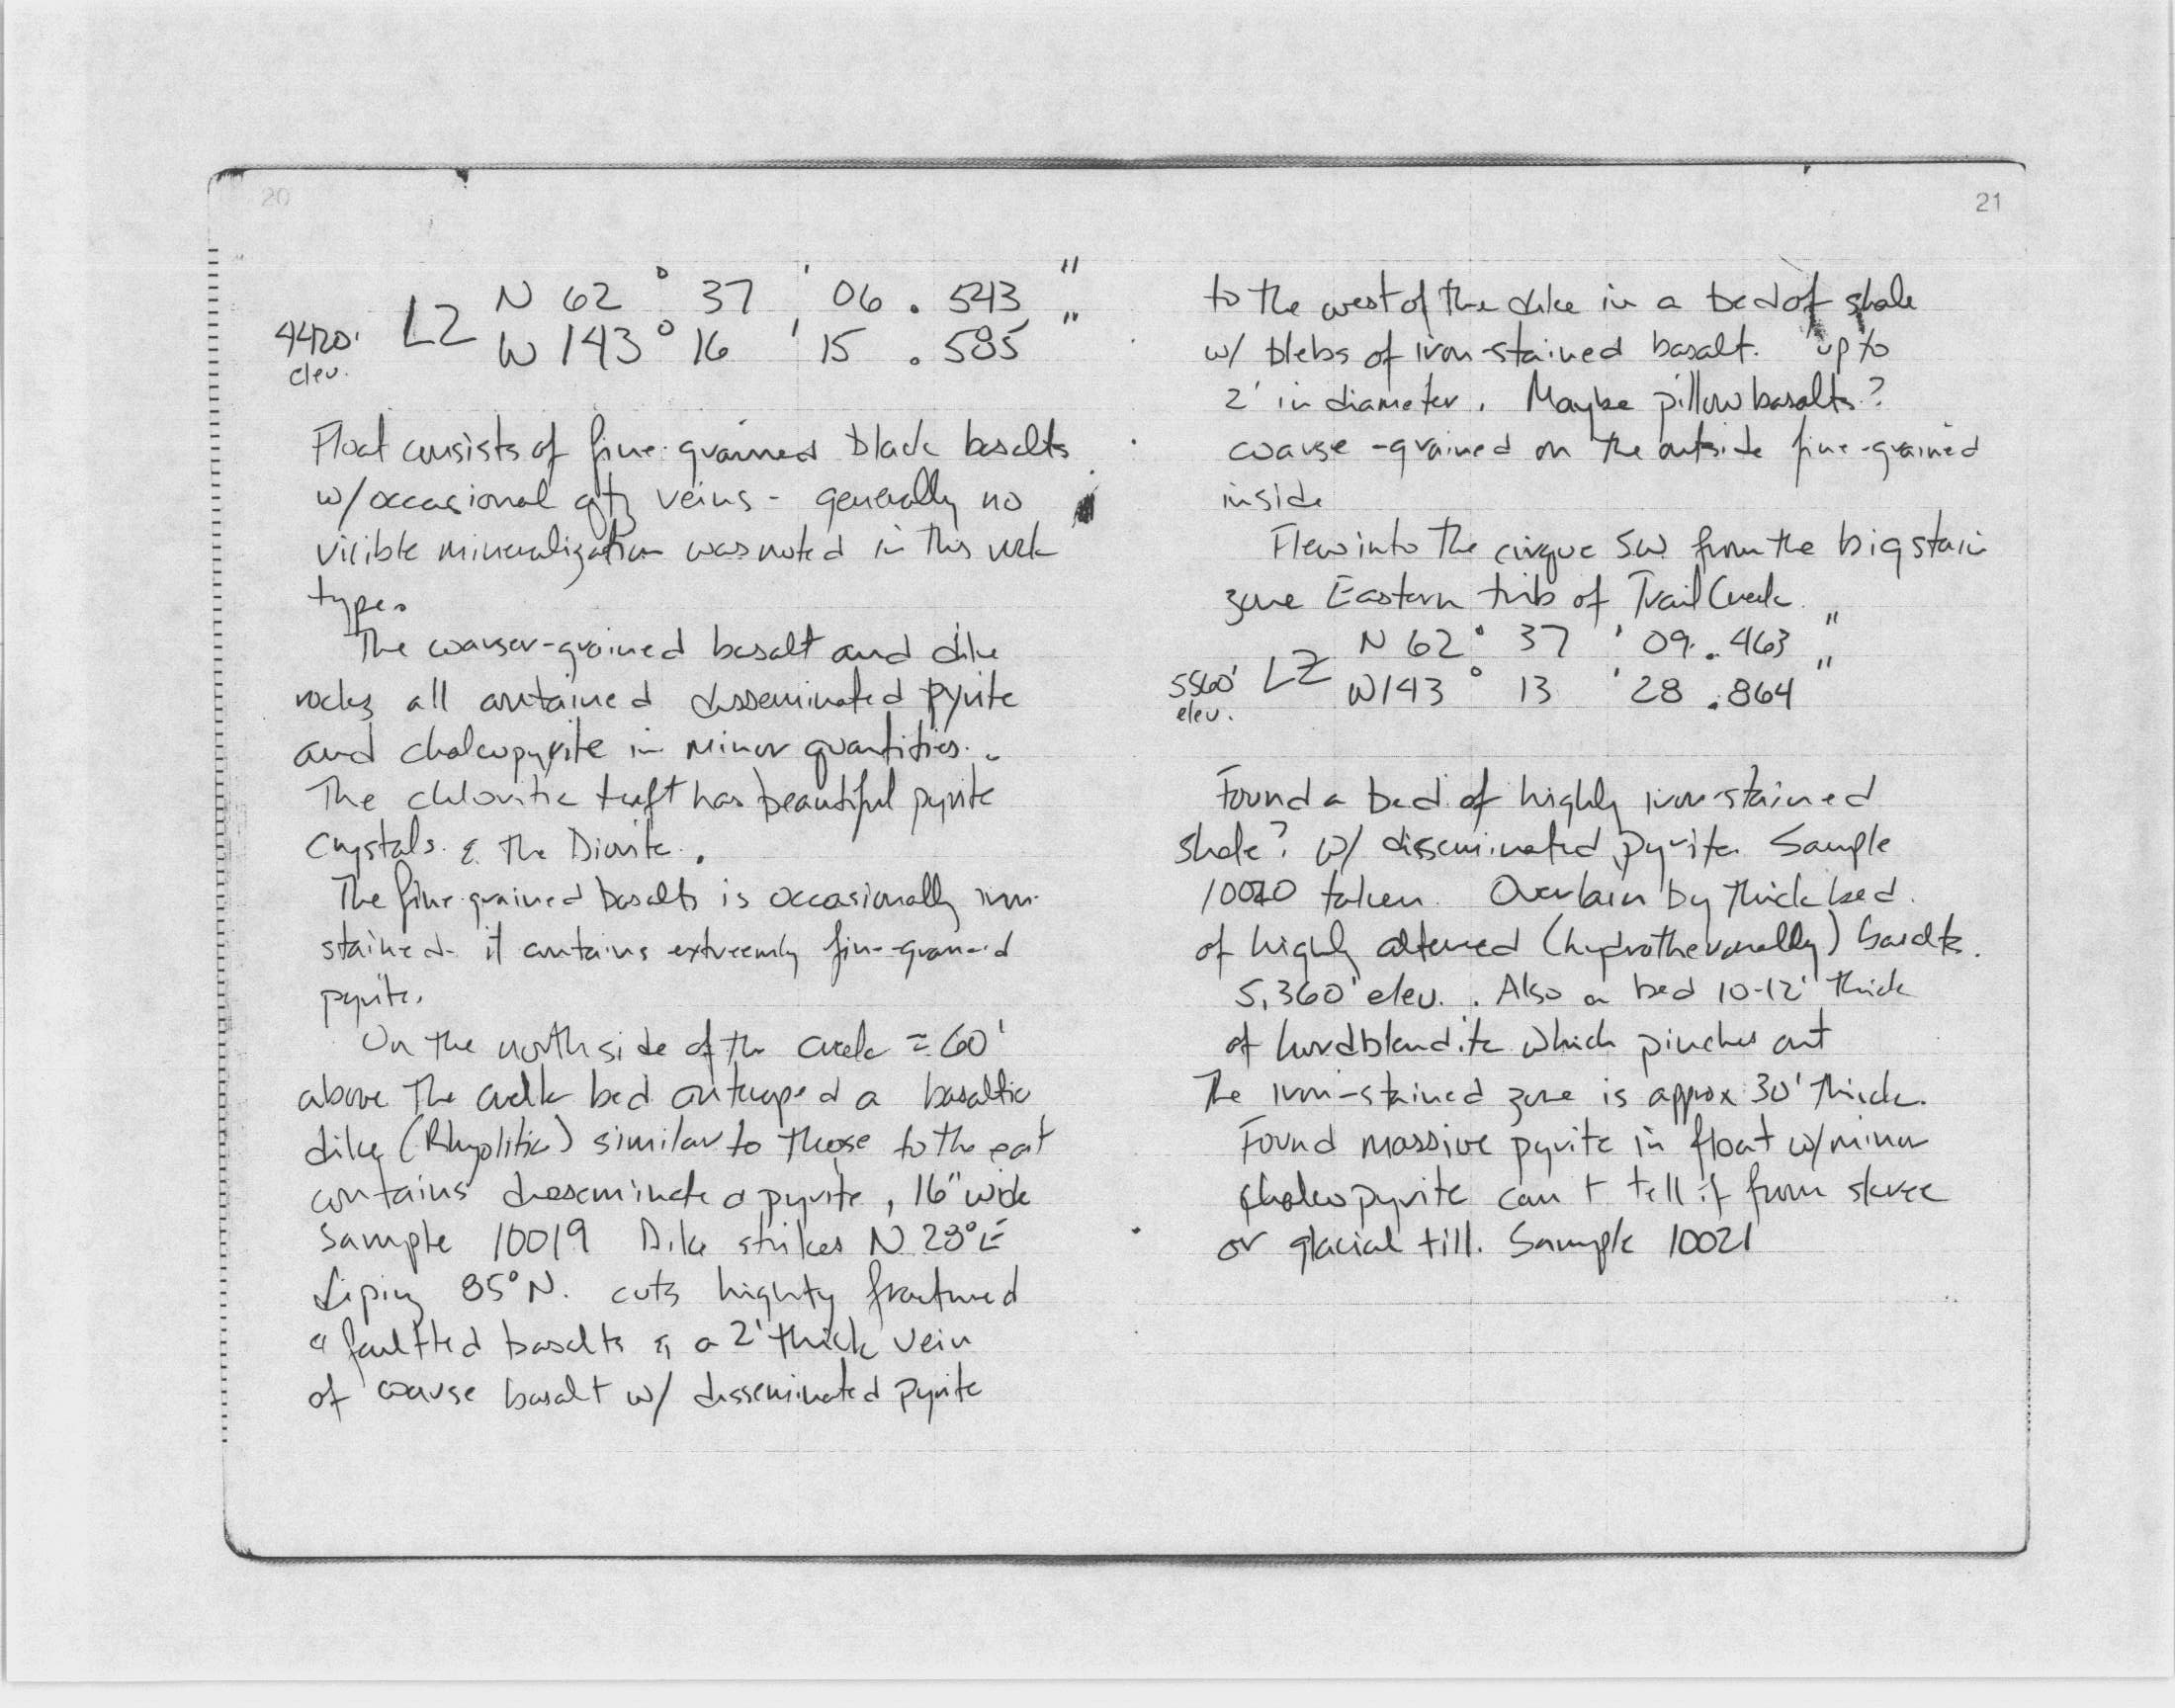 20
N 62 ° 37 ' 06 . 543 "
4420' LZ W 143° 16 ' 15 . 585 "
elev.
Float consists of fine-grained black basalts
w/ occasional qtz veins - generally no
visible mineralization was noted in this rock
type.
The coarser-grained basalt and dike
rocks all contained disseminated pyrite
and chalcopyrite in minor quantities.
The chloritic tuft has beautiful pyrite
crystals & The Diorite.
The fine-grained basalts is occasionally iron-
stained - it contains extreemly fine-grained
pyrite.
On the north side of the creek ≈ 60'
above The creek bed outcroped a basaltic
dike (Rhyolitic) similar to those to the east
contains disseminated pyrite, 16" wide
Sample 10019 Dike strikes N 28° E
diping 85° N. cuts highly fractured
& faultted basalts & a 2' thick vein
of coarse basalt w/ disseminated pyrite
21
to the west of the dike in a bed of shale
w/ blebs of iron-stained basalt. up to
2' in diameter. Maybe pillow basalts?
coarse-grained on the outside fine-grained
inside
Flew into The cirque SW from the big stain
zone Eastern trib of Trail Creek.
N 62° 37 ' 09 . 463 "
5560' LZ W 143 ° 13 ' 28 . 864 "
elev.
Found a bed of highly iron-stained
shale? w/ disseminated pyrite. Sample
10020 taken. Overlain by thick bed
of highly altered (hydrothermally) basalts.
5,360' elev. . Also a bed 10-12' thick
of hornblendite which pinches out
The iron-stained zone is approx 30' thick.
Found massive pyrite in float w/ minor
chalcopyrite can't tell if from skree
or glacial till. Sample 10021